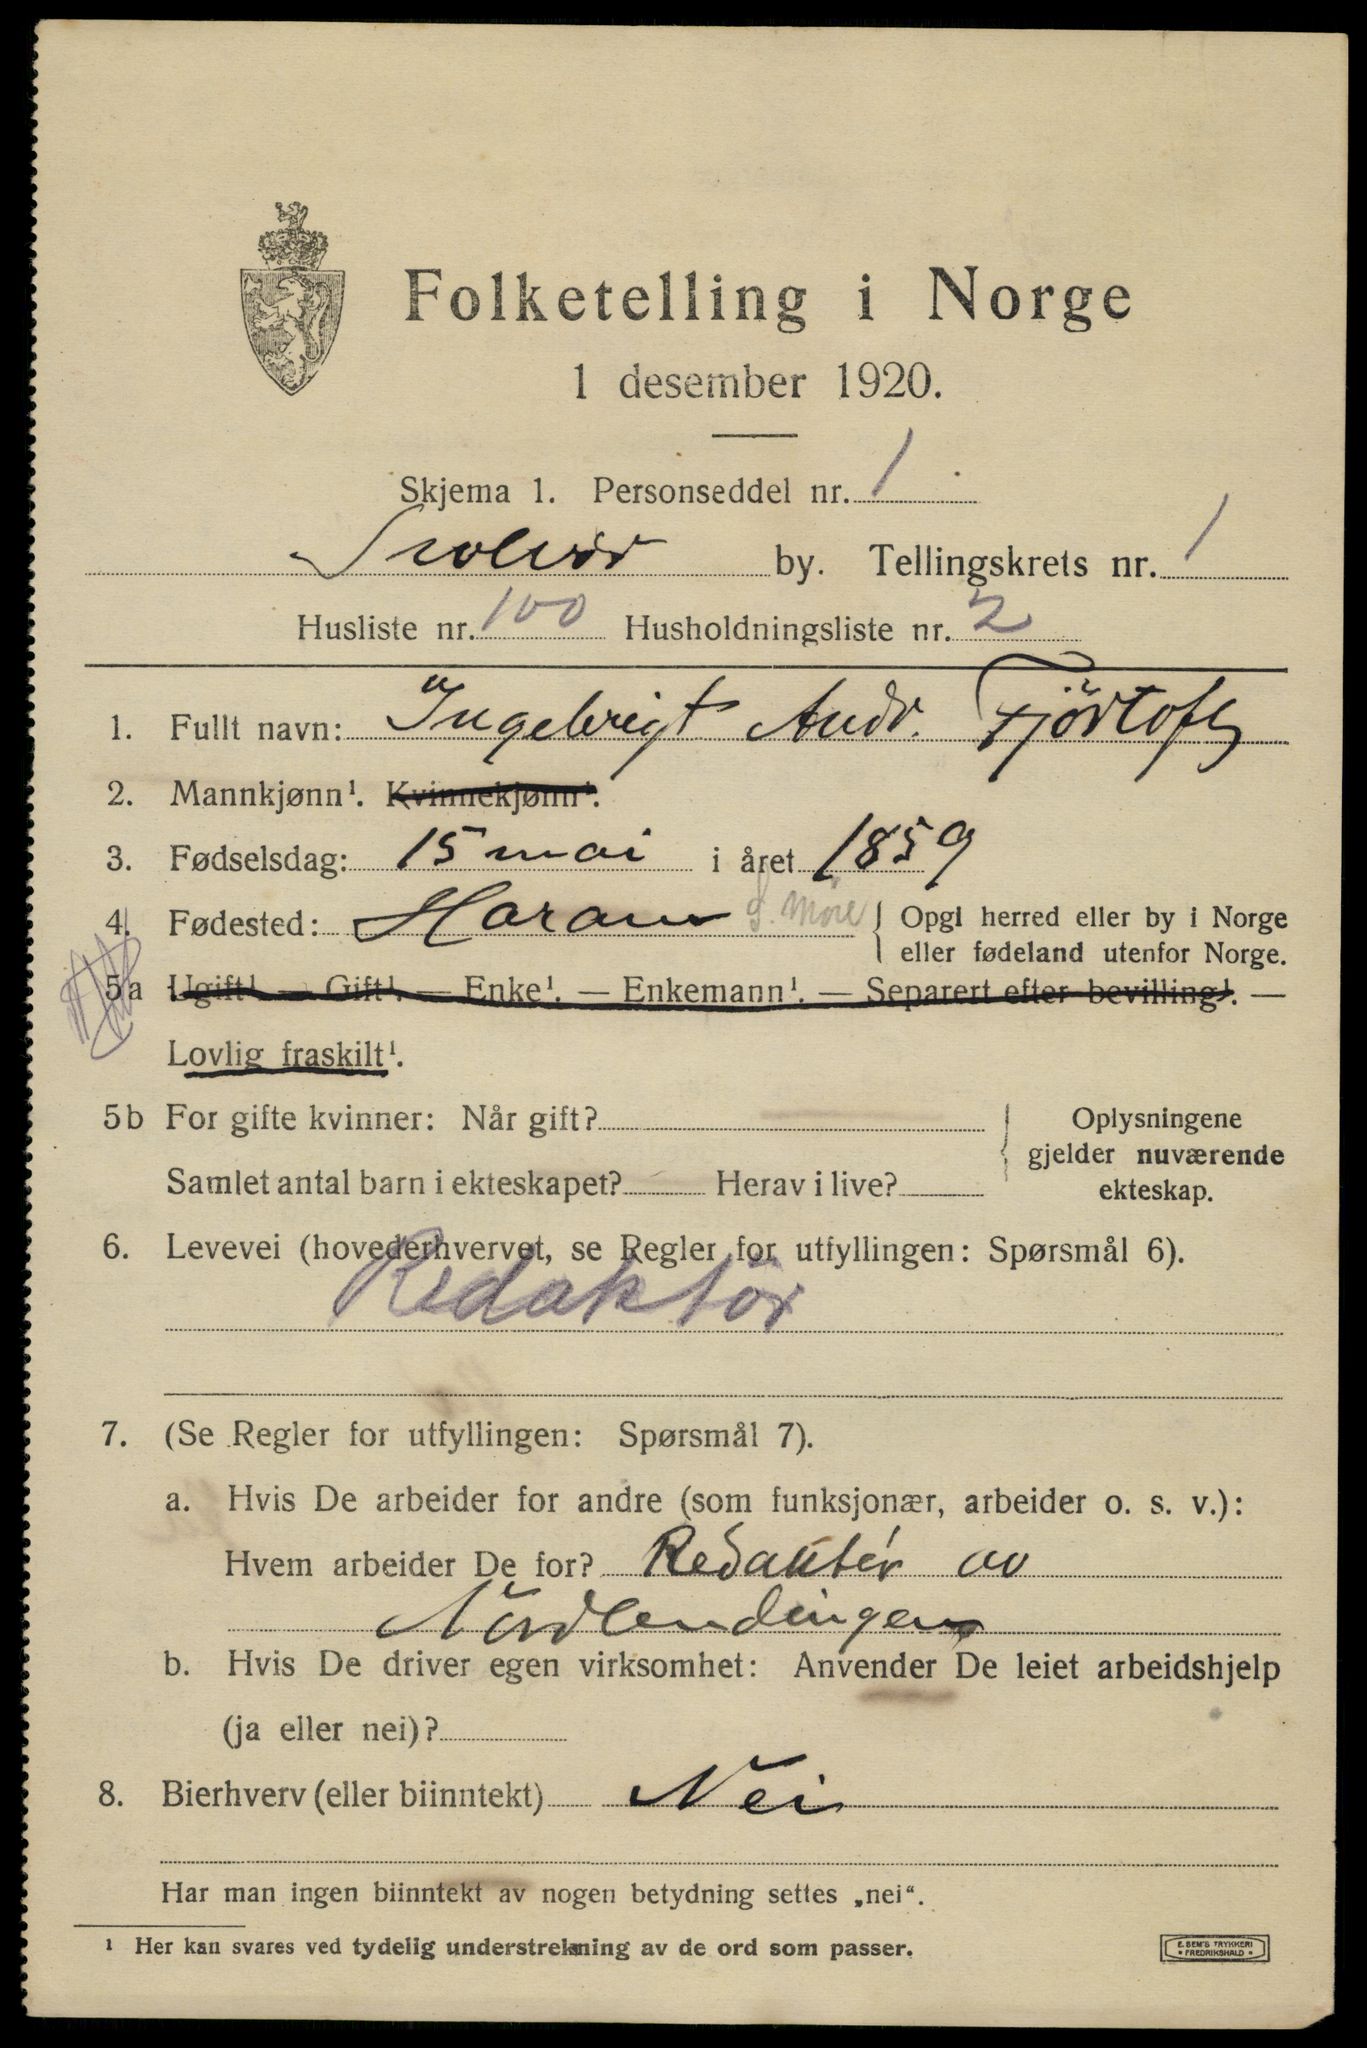 Folketelling i Norge
1 desember 1920.
Skjema 1. Personseddel nr. 1
Svolvær by. Tellingskrets nr. 1
Husliste nr. 100 Husholdningsliste nr. 2
1. Fullt navn: Ingebrigt Andr. Fjörtoft
2. Mannkjønn¹. Kvinnekjønn¹.
3. Fødselsdag: 15 mai i året 1859
4. Fødested: Haram S. Möre { Opgi herred eller by i Norge
eller fødeland utenfor Norge.
5a Ugift¹. — Gift¹. — Enke¹. — Enkemann¹. — Separert efter bevilling¹. —
Lovlig fraskilt¹.
5b For gifte kvinner: Når gift? { Oplysningene
gjelder nuværende
Samlet antal barn i ekteskapet? Herav i live? ekteskap.
6. Levevei (hovederhvervet, se Regler for utfyllingen: Spørsmål 6).
Redaktör
7. (Se Regler for utfyllingen: Spørsmål 7).
a. Hvis De arbeider for andre (som funksjonær, arbeider o. s. v.):
Hvem arbeider De for? Redaktör av
Nordlendingen
b. Hvis De driver egen virksomhet: Anvender De leiet arbeidshjelp
(ja eller nei)?
8. Bierhverv (eller biinntekt) Nei
Har man ingen biinntekt av nogen betydning settes „nei“.
¹ Her kan svares ved tydelig understrekning av de ord som passer.
E. SEM'S TRYKKERI
• FREDRIKSHALD •